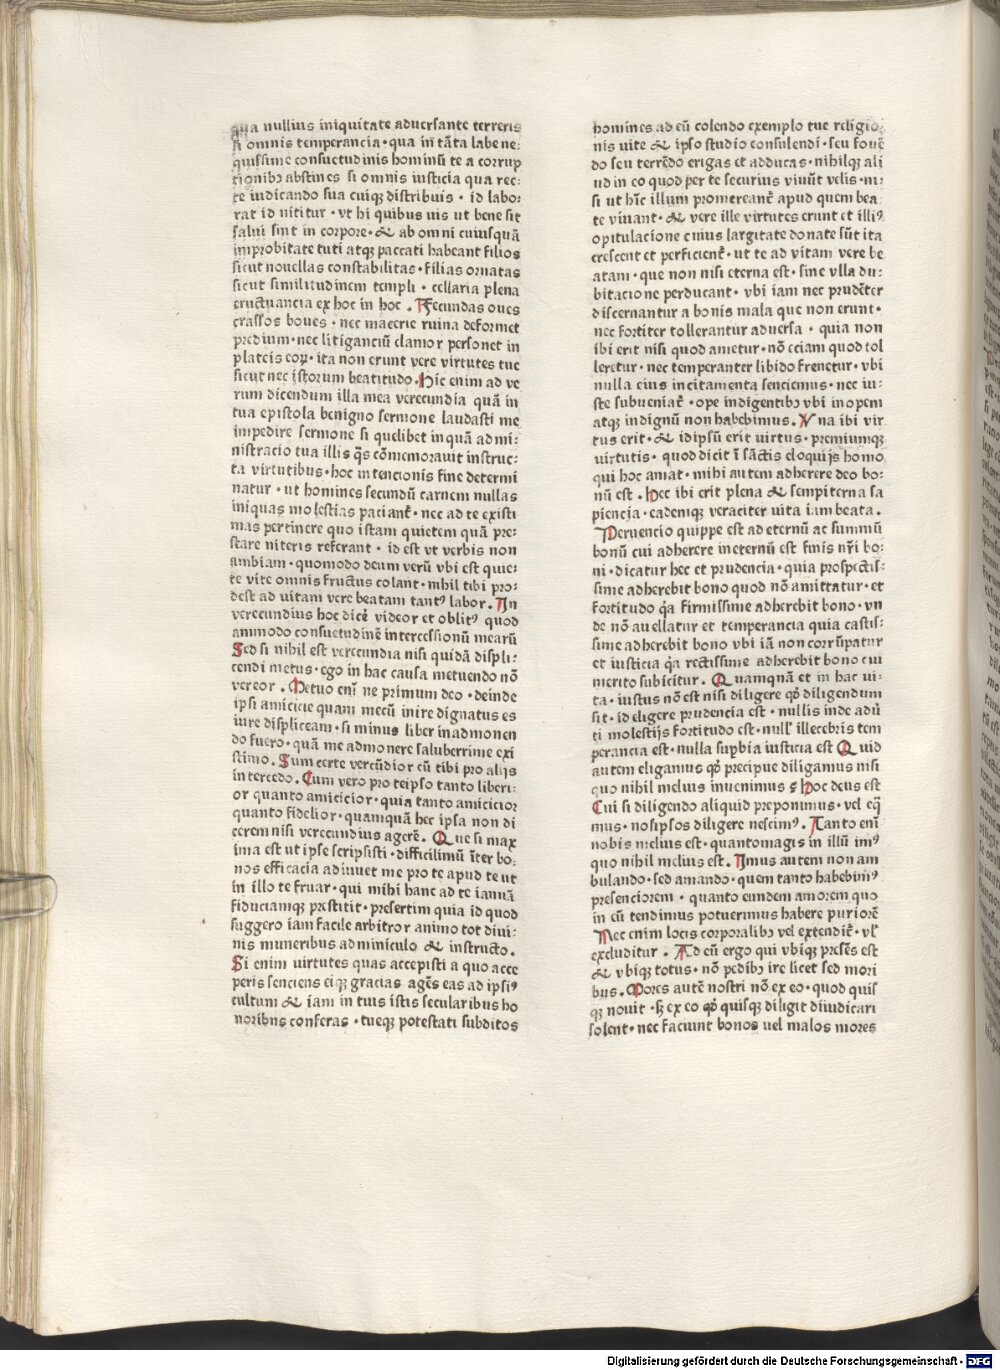 qua nullius iniquitate aduersante terreris
si omnis temperancia · qua in̄ tāta labe ne⸗
quissime consuetudinis hominū te a corrup
tionibꝫ abstines si omnis iusticia qua rec⸗
te iudicando sua cuiqꝫ distribuis · id labo⸗
rat id nititur · vt hi quibus uis ut bene sit
salui sint in corpore · & ab omni cuiusquā
improbitate tuti atqꝫ paccati habeant filios
sicut nouellas constabilitas · filias ornatas
sicut similitudinem templi · cellaria plena
eructuancia ex hoc in hoc . Fecundas oues
crassos boues · nec macerie ruina deformet
predium · nec litiganciū clamor personet in
plateis eoꝝ · ita non erunt vere virtutes tue
sicut nec istorum beatitudo. Hic enim ad ve
rum dicendum illa mea verecundia quā in
tua epistola benigno sermone laudasti me
impedire sermone si quelibet inquā admi⸗
nistracio tua illis q̄s cōmemorauit instruc⸗
ta virtutibus · hoc intencionis fine determi
natur · ut homines secundū carnem nullas
iniquas molestias paciant̄ · nec ad te existi
mas pertinere quo istam quietem quā pre⸗
stare niteris referant · id est vt verbis non
ambiam · quomodo deum verū vbi est quie⸗
te vite omnis fructus colant · nihil tibi pro⸗
dest ad uitam vere beatam tantꝰ labor . In
verecundius hoc dicē videor et oblitꝰ quod
ammodo consuetudinē intercessionū mearū
Sed si nihil est verecundia nisi quidā displi⸗
cendi metus · ego in hac causa metuendo nō
vereor . Metuo enī ne primum deo · deinde
ipsi amicicie quam mecū inire dignatus es
iure displiceam · si minus liber in admonen
do fuero · quā me admonere saluberrime exi
stimo . Sum certe vercūdior cū tibi pro alijs
intercedo. Cum vero pro teipso tanto liberi⸗
or quanto amicicior · quia tanto amicicior
quanto fidelior · quamquā hec ipsa non di
cerem nisi verecundius agerē . Que si max
ima est ut ipse scripsisti · difficilimū īter bo⸗
nos efficacia adiuuet me pro te apud te ut
in illo te fruar · qui mihi hanc ad te ianuā
fiduciamqꝫ prestitit · presertim quia id quod
suggero iam facile arbitror animo tot diui⸗
nis muneribus adminiculo & instructo .
Si enim virtutes quas accepisti a quo acce
peris senciens eiqꝫ gracias agēs eas ad ipsiꝰ
cultum & iam in tuis istis secularibus ho
noribus conferas · tueqꝫ potestati subditos
homines ad eū colendo exemplo tue religio⸗
nis uite & ipso studio consulendi · seu fouē
do seu terrēdo erigas et adducas · nihilqꝫ ali
ud in eo quod per te securius viuūt velis · ni⸗
si ut hīc illum promereant̄ apud quem bea
te viuant · & vere ille virtutes erunt et illiꝰ
opitulacione cuius largitate donate sūt ita
crescent et perficient̄ · ut te ad vitam vere be
atam · que non nisi eterna est · sine vlla du⸗
bitacione perducant · vbi iam nec prudēter
discernantur a bonis mala que non erunt ·
nec fortiter tollerantur aduersa · quia non
ibi erit nisi quod ametur · nō eciam quod tol
leretur · nec temperanter libido frenetur · vbi
nulla eius incitamenta senciemus · nec iu⸗
ste subueniat̄ · ope indigentibꝫ vbi inopem
atqꝫ indignū non habebimus. Vna ibi vir
tus erit · & idipsū erit virtus · premiumqꝫ
virtutis · quod dicit ī sāctis eloquijs homo
qui hoc amat · mihi autem adherere deo bo⸗
nū est . Hec ibi erit plena & sempiterna sa
piencia · eademqꝫ veraciter uita iam beata .
Peruencio quippe est ad eternū ac summū
bonū cui adherere in eternū est finis nr̄i bo⸗
ni · dicatur hec et prudencia · quia prospectis⸗
sime adherebit bono quod nō amittatur · et
fortitudo q̄a firmissime adherebit bono · vn
de nō auellatur et temperancia quia castis⸗
sime adherebit bono vbi iā non corrūpatur
et iusticia q̄a rectissime adherebit bono cui
merito subicitur . Quamquā et in hac ui⸗
ta · iustus nō est nisi diligere qđ diligendum
sit · id eligere prudencia est · nullis inde adū
ti molestijs fortitudo est · null' illecebris tem
perancia est · nulla supbia iusticia est Quid
autem eligamus qđ precipue diligamus nisi
quo nihil melius inuenimus ꝯ hoc deus est
Cui si diligendo aliquid preponimus · vel eq̄
mus · nosipsos diligere nescimꝰ . Tanto enī
nobis melius est · quantomagis in illū imꝰ
quo nihil melius est . Imus autem non am
bulando · sed amando · quem tanto habebimꝰ
presenciorem · quanto eundem amorem quo
in eū tendimus potuerimus habere puriorē
Nec enim locis corporalibꝫ vel extendit̄ · vl'
excluditur . Ad eū ergo qui vbiqꝫ presēs est
& vbiqꝫ totus · nō pedibꝫ ire licet sed mori
bus . Mores autē nostri nō ex eo · quod quis
qꝫ nouit · sꝫ ex eo qđ quisqꝫ diligit diiudicari
solent · nec faciunt bonos uel malos mores
Digitalisierung gefördert durch die Deutsche Forschungsgemeinschaft - DFG